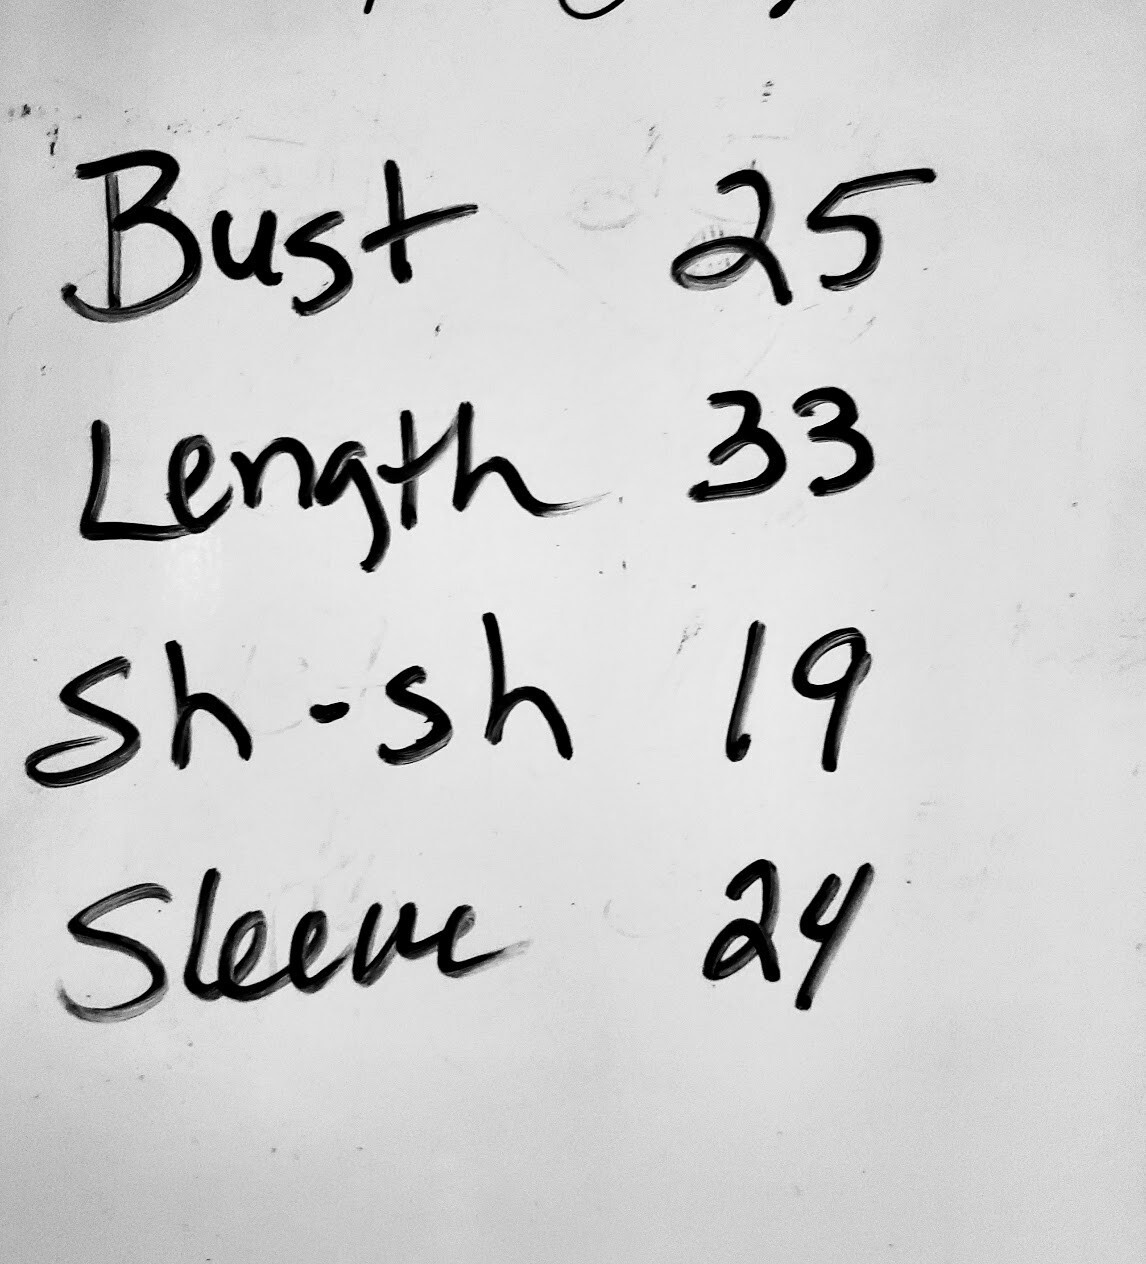 Bust 25
Length 33
Sh-sh 19
Sleeve 24